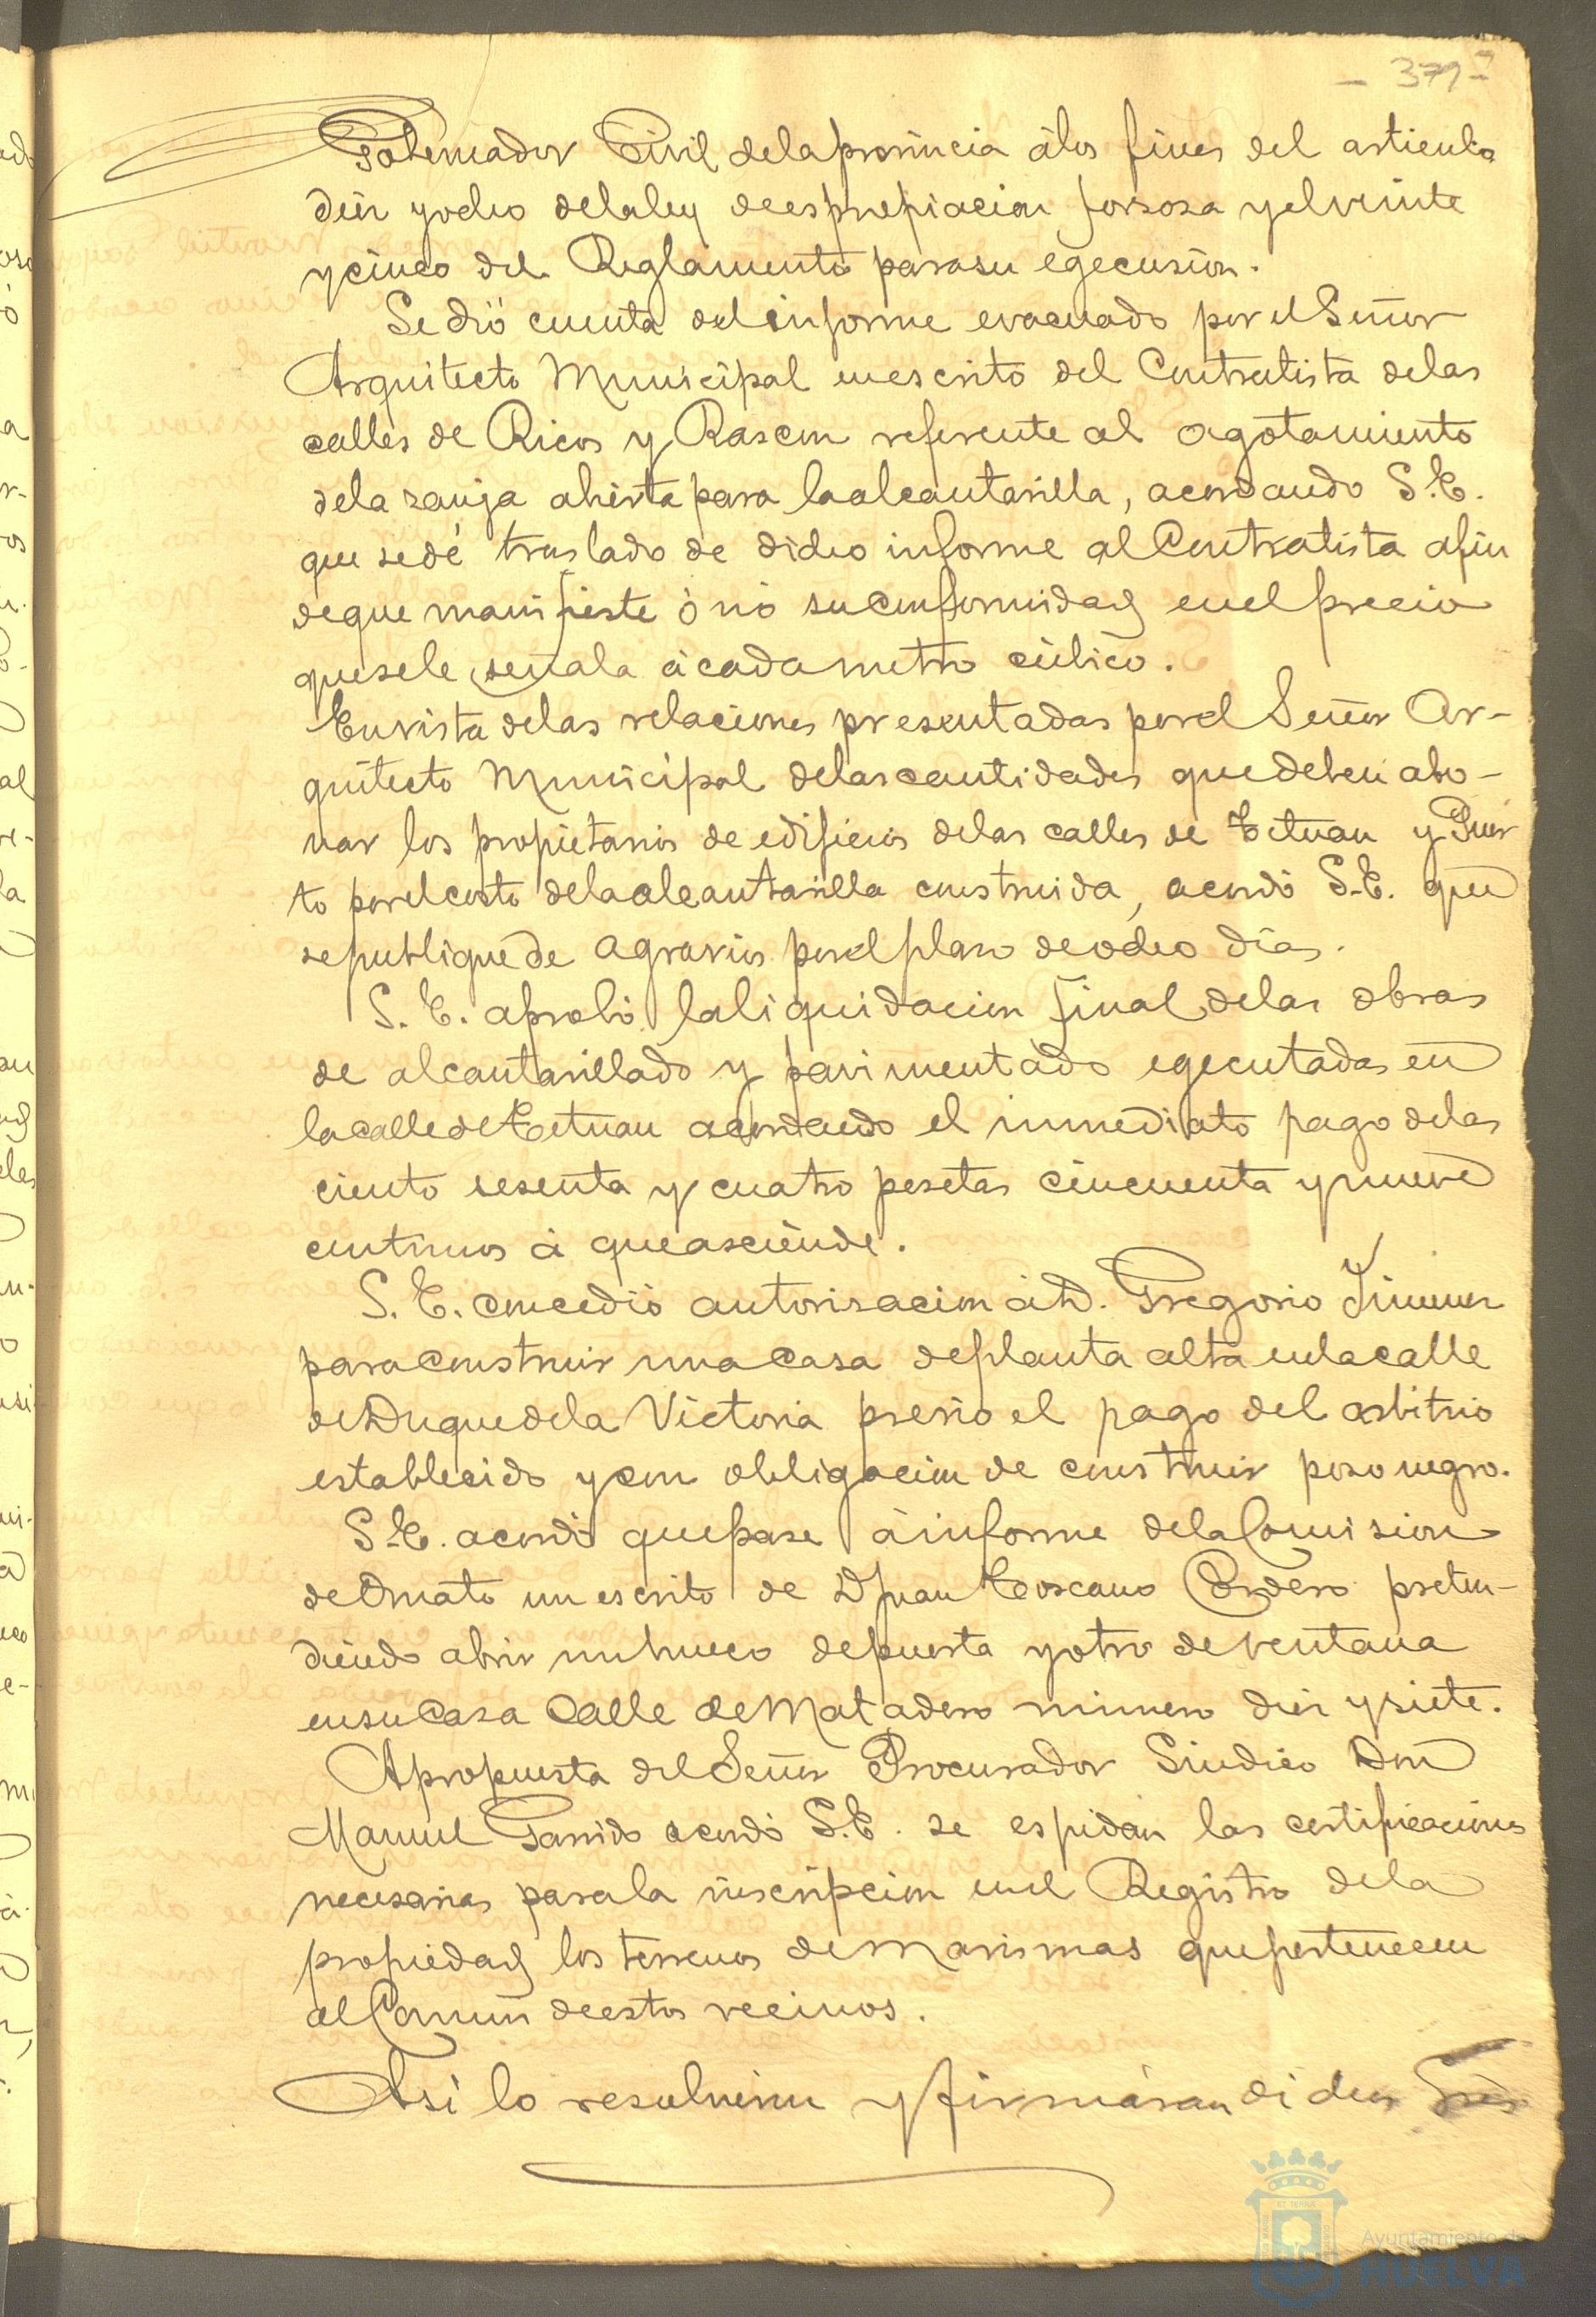 - 379 -
Gobernador Civil de la provincia á los fines del articulo
diez y ocho de la ley de espropiacion forsosa y el veinte
y cinco del Reglamento para su egecusion.
Se dió cuenta del informe evacuado por el Señor
Arquitecto Municipal en escrito del Contratista de las
calles de Ricos y Rascon referente al agotamiento
de la zanja abierta para la alcantarilla, acordando S.E.
que se dé traslado de dicho informe al Contratista afin
de que manifieste ó nó su conformidad en el precio
que se le señala á cada metro cúbico.
En vista de las relaciones presentadas por el Señor Ar-
quitecto Municipal de las cantidades que deben abo-
nar los propietarios de edificios de las calles de Tetuan y Puer
to por el costo de la alcantarilla construida, acordó S.E. que
se publique de agravios por el plazo de ocho días.
S. E. aprobó la liquidacion final de las obras
de alcantarillado y pavimentado egecutadas en
la calle de Tetuan acordando el inmediato pago de las
ciento sesenta y cuatro pesetas cincuenta y nueve
centimos á que asciende.
S. E. concedió autorizacion á D. Gregorio Jimenez
para construir una casa de planta alta en la calle
de Duque de la Victoria previo el pago del arbitrio
establecido y con obligacion de construir pozo negro.
S.E. acordó que pase á informe de la Comision
de Ornato un escrito de D Juan Toscano Cordero preten-
diendo abrir un hueco de puerta y otro de ventana
en su casa Calle de Matadero número diez y siete.
A propuesta del Señor Procurador Sindico Don
Manuel Garrido acordó S.E. se espidan las certificaciones
necesarias para la inscripcion en el Registro de la
propiedad los terrenos de Marismas que pertenecen
al Comun de estos vecinos.
Así lo resolvieron y firmáran dichos Sres
Ayuntamiento de
HUELVA